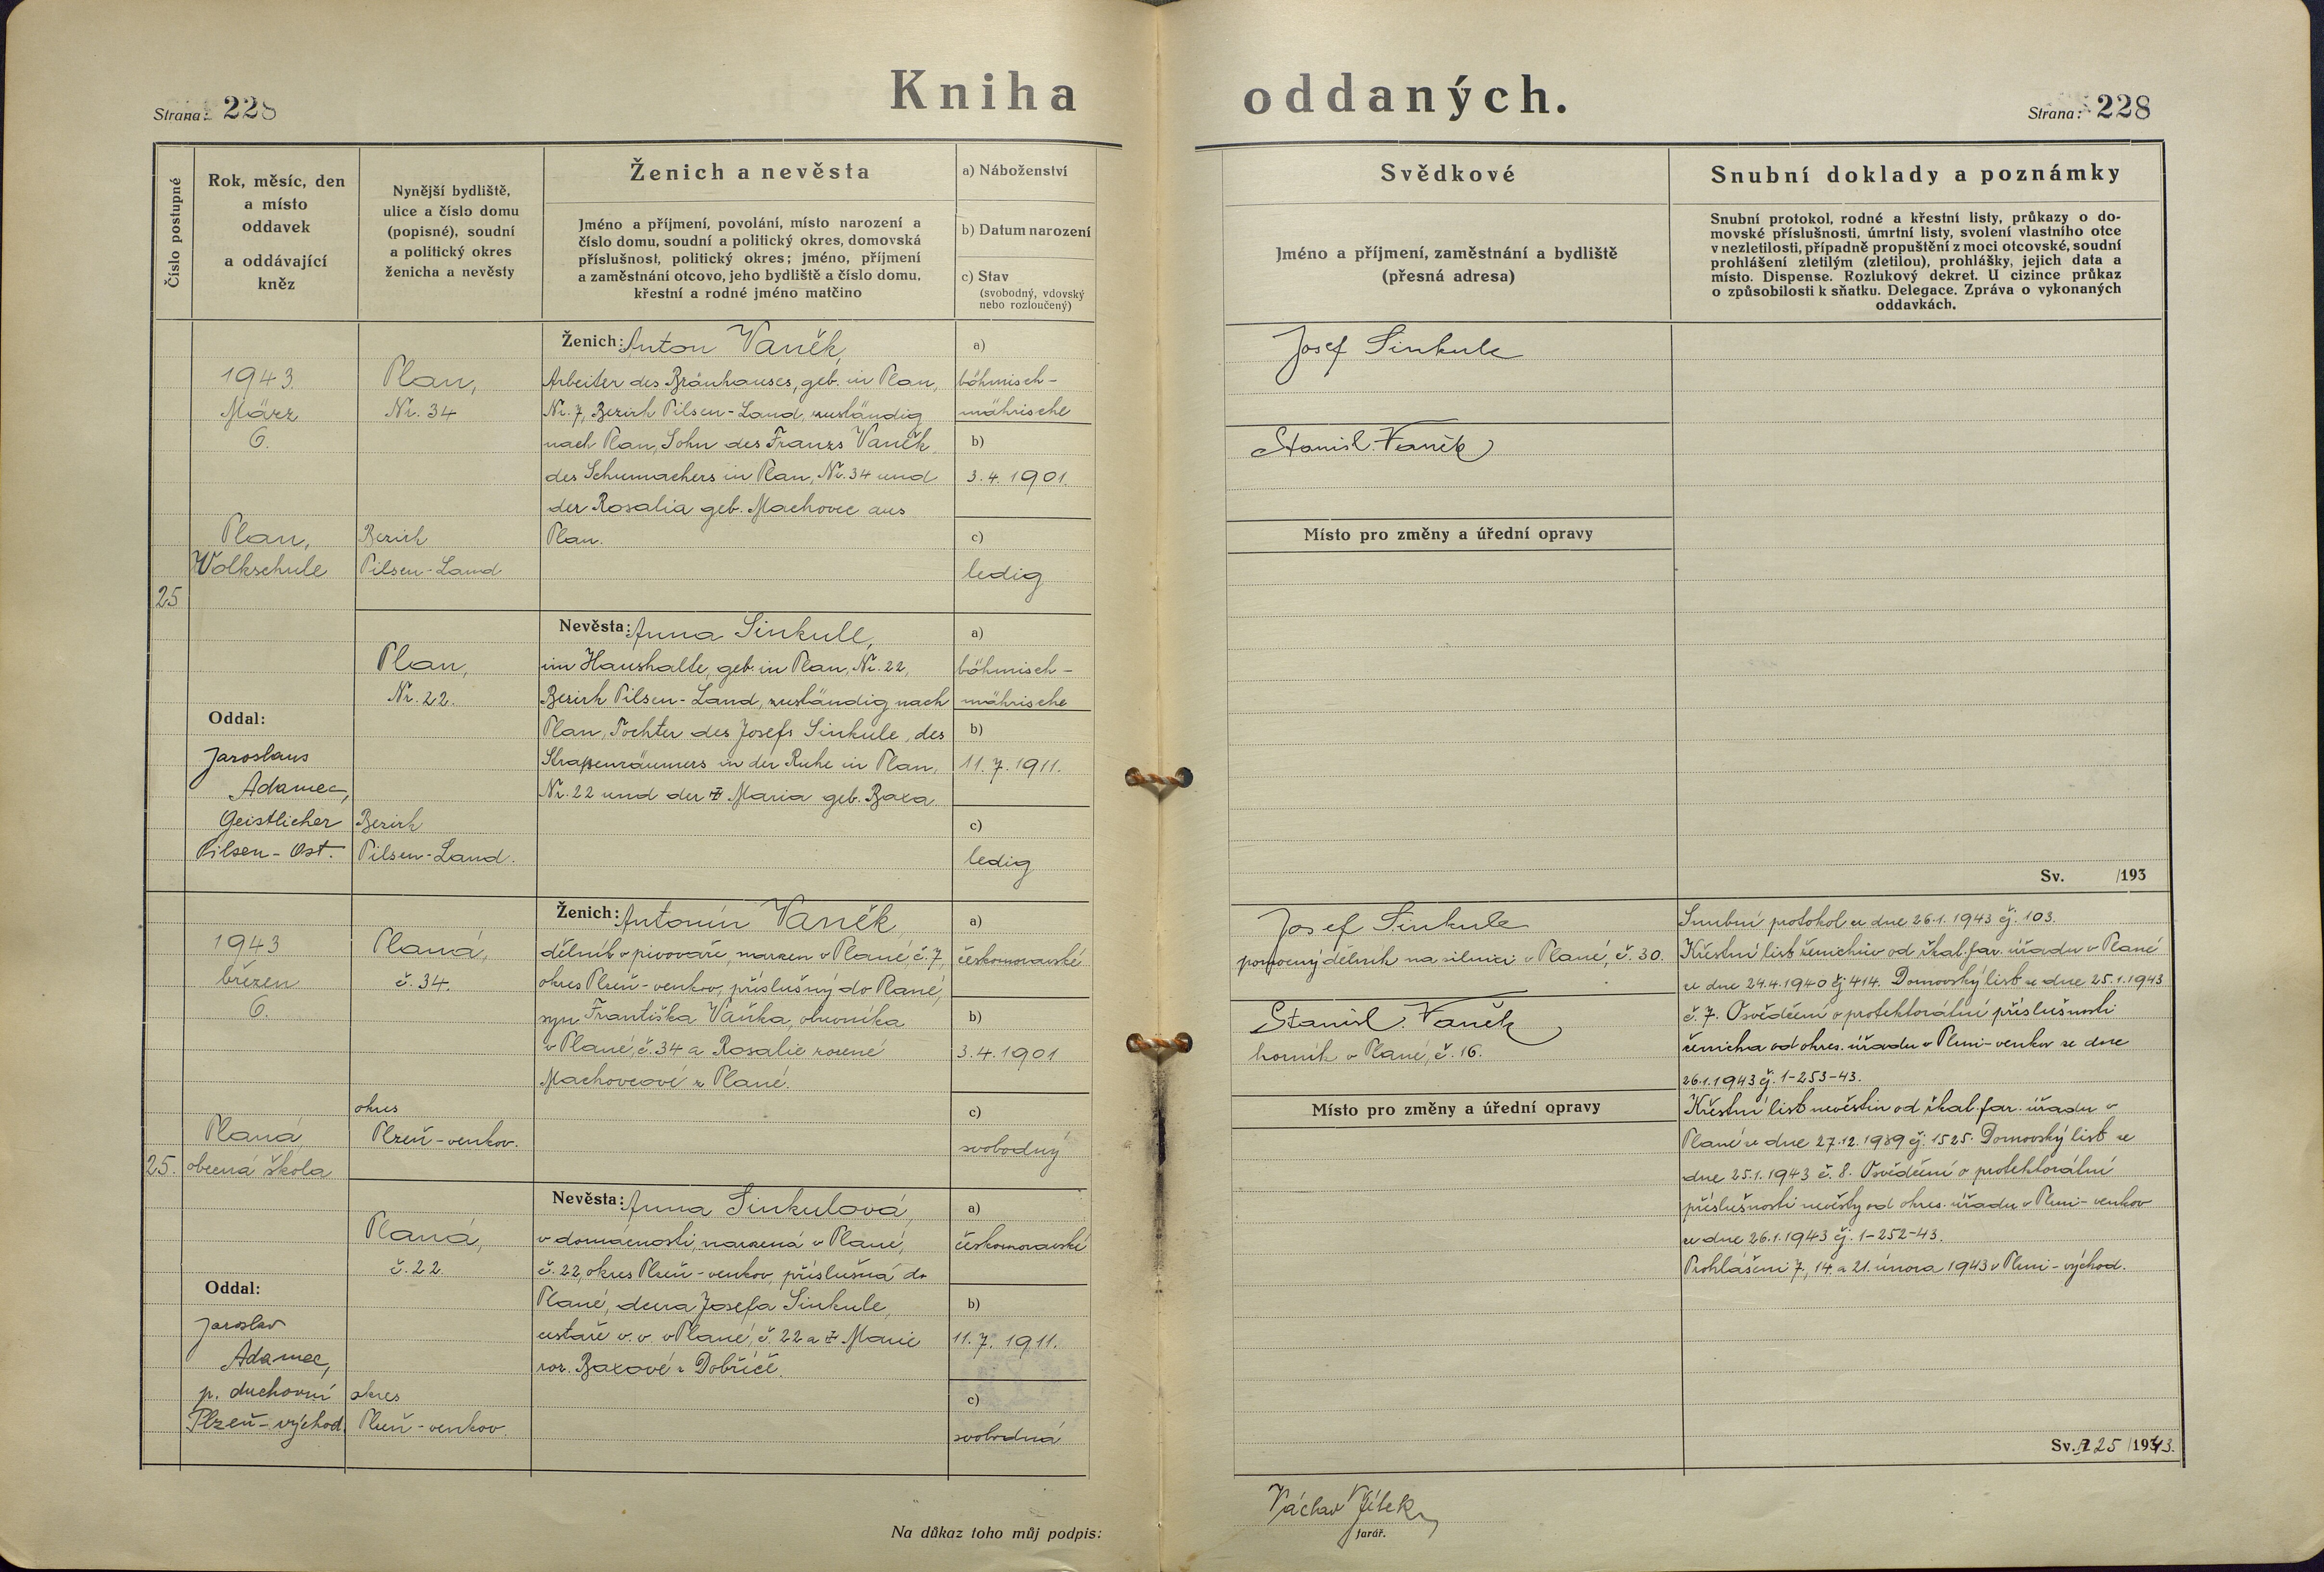 Strana: 228
Kniha oddaných.
Strana: 228
Číslo postupné
Rok, měsíc, den
a místo
oddavek
a oddávající
kněz
Nynější bydliště,
ulice a číslo domu
(popisné), soudní
a politický okres
ženicha a nevěsty
Ženich a nevěsta
Jméno a příjmení, povolání, místo narození a
číslo domu, soudní a politický okres, domovská
příslušnost, politický okres; jméno, příjmení
a zaměstnání otcovo, jeho bydliště a číslo domu,
křestní a rodné jméno matčino
a) Náboženství
b) Datum narození
c) Stav
(svobodný, vdovský
nebo rozloučený)
Svědkové
Jméno a příjmení, zaměstnání a bydliště
(přesná adresa)
Snubní doklady a poznámky
Snubní protokol, rodné a křestní listy, průkazy o do-
movské příslušnosti, úmrtní listy, svolení vlastního otce
v nezletilosti, případně propuštění z moci otcovské, soudní
prohlášení zletilým (zletilou), prohlášky, jejich data a
místo. Dispense. Rozlukový dekret. U cizince průkaz
o způsobilosti k sňatku. Delegace. Zpráva o vykonaných
oddavkách.
25
1943.
März
6.
Plan,
Volkschule
Oddal:
Jaroslaus
Adamec,
Geistlicher
Pilsen-Ost.
Plan,
Nr. 34
Bezirk
Pilsen-Land
Plan,
Nr. 22.
Bezirk
Pilsen-Land.
Ženich: Anton Vaněk,
Arbeiter des Bräuhauses, geb. in Plan,
Nr. 7, Bezirk Pilsen-Land, zuständig
nach Plan, Sohn des Franzs Vaněk
des Schumachers in Plan, Nr. 34 und
der Rosalia geb. Machovec aus
Plan.
a)
böhmisch-
mährische
b)
3. 4. 1901.
c)
ledig
Nevěsta: Anna Sinkule,
im Haushalte, geb. in Plan, Nr. 22,
Bezirk Pilsen-Land, zuständig nach
Plan, Tochter des Josefs Sinkule, des
Straßenräumers in der Ruhe in Plan,
Nr. 22 und der Maria geb. Baxa
a)
böhmisch-
mährische
b)
11. 7. 1911.
c)
ledig
Josef Sinkule
Stanisl. Vaněk
Místo pro změny a úřední opravy
Sv. /193
25.
1943
březen
6.
Planá
obecná škola
Oddal:
Jaroslav
Adamec,
p. duchovní
Plzeň-východ.
Planá,
č. 34.
okres
Plzeň-venkov.
Planá,
č. 22.
okres
Plzeň-venkov.
Ženich: Antonín Vaněk,
dělník v pivováře, narozen v Plané, č. 7,
okres Plzeň-venkov, příslušný do Plané,
syn Františka Vaňka, obuvníka
v Plané, č. 34 a Rosalie rozené
Machovcové z Plané.
a)
českomoravské
b)
3. 4. 1901
c)
svobodný
Nevěsta: Anna Sinkulová,
v domácnosti, narozená v Plané,
č. 22, okres Plzeň-venkov, příslušná do
Plané, dcera Josefa Sinkule,
cestáře v. v. v Plané, č. 22 a Marie
roz. Baxové z Dobříče.
a)
českomoravské
b)
11. 7. 1911.
c)
svobodná
Josef Sinkule
pomocný dělník na silnici v Plané, č. 30.
Stanisl. Vaněk
horník v Plané, č. 16.
Místo pro změny a úřední opravy
Snubní protokol ze dne 26.1. 1943 čj. 103.
Křestní list ženichův od řkat. far. úřadu v Plané
ze dne 24.4.1940 čj. 414. Domovský list ze dne 25.1.1943
č. 7. Osvědčení o protektorátní příslušnosti
ženicha od okres. úřadu v Plzni-venkov ze dne
26.1.1943 čj. 1-253-43.
Křestní list nevěstin od řkat. far. úřadu v
Plané ze dne 27.12.1939 čj. 1525. Domovský list ze
dne 25.1.1943 č. 8. Osvědčení o protektorátní
příslušnosti nevěsty od okres. úřadu v Plzni-venkov
ze dne 26.1.1943 čj. 1-252-43.
Prohlášeni 7., 14. a 21. února 1943 v Plzni-východ.
Sv. 25/1943.
Na důkaz toho můj podpis:
Václav
farář.